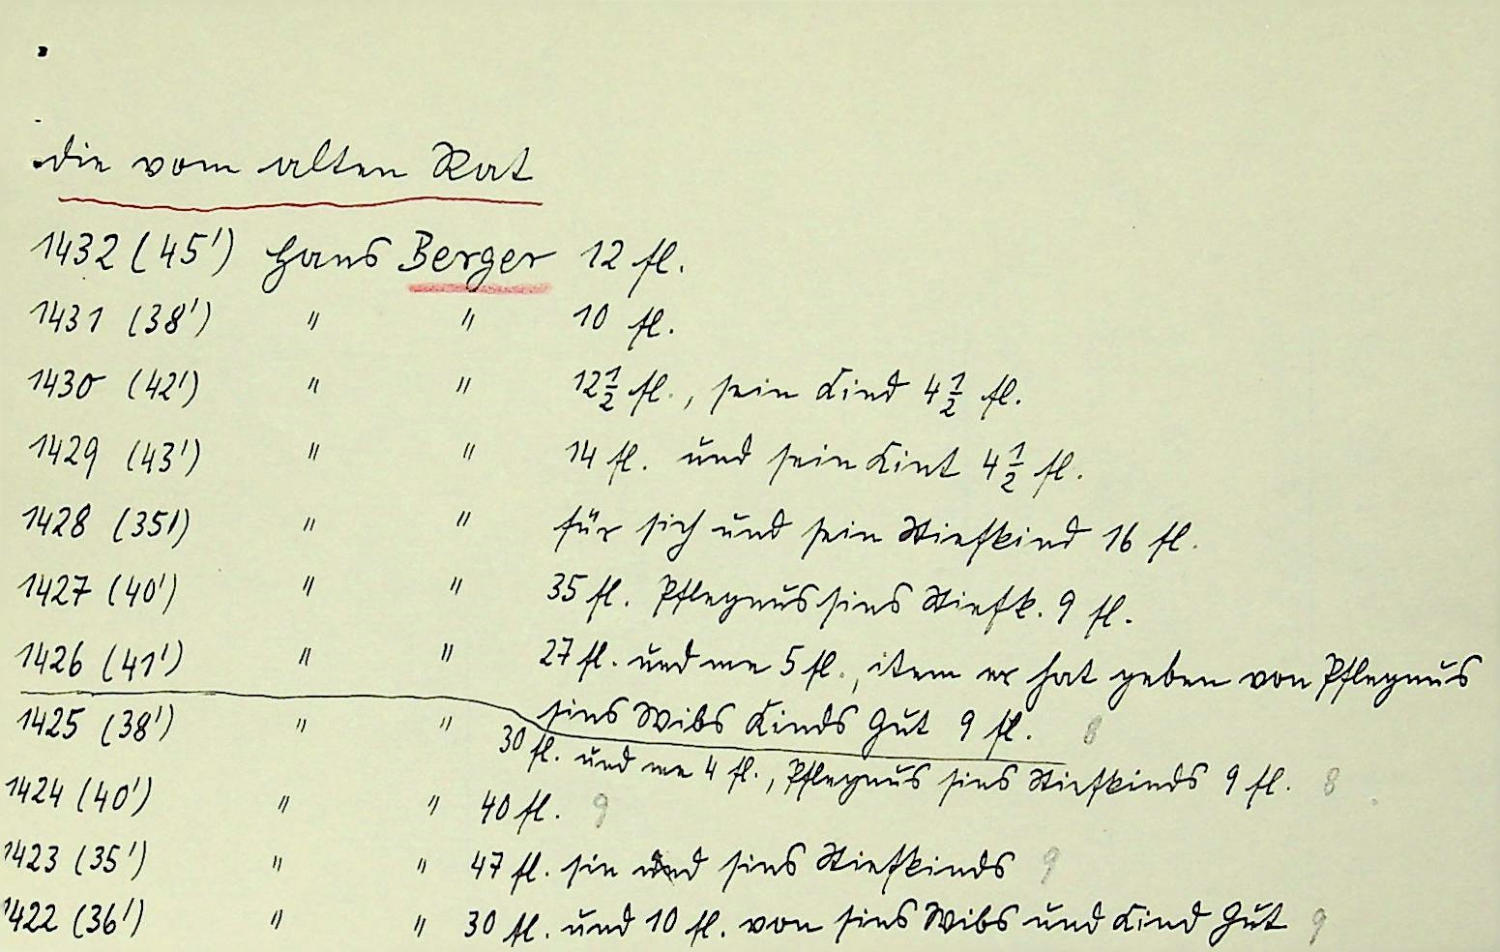 die vom alten Rat
1432 (45') Hans Berger 12 fl.
1431 (38') " " 10 fl.
1430 (42') " " 12½ fl., sein Kind 4½ fl.
1429 (43') " " 14 fl. und sein Kint 4½ fl.
1428 (35') " " für sich und sein Stiefkind 16 fl.
1427 (40') " " 35 fl. Pflegnus sins Stiefk. 9 fl.
1426 (41') " " 27 fl. und me 5 fl., item er hat geben von Pflegnus
sins Wibs Kinds Gut 9 fl. 8
1425 (38') " " 30 fl. und me 4 fl., Pflegnus sins Stiefkinds 9 fl. 8
1424 (40') " " 40 fl. 9
1423 (35') " " 47 fl. sin und sins Stiefkinds 9
1422 (36') " " 30 fl. und 10 fl. von sins Wibs und Kind Gut 9